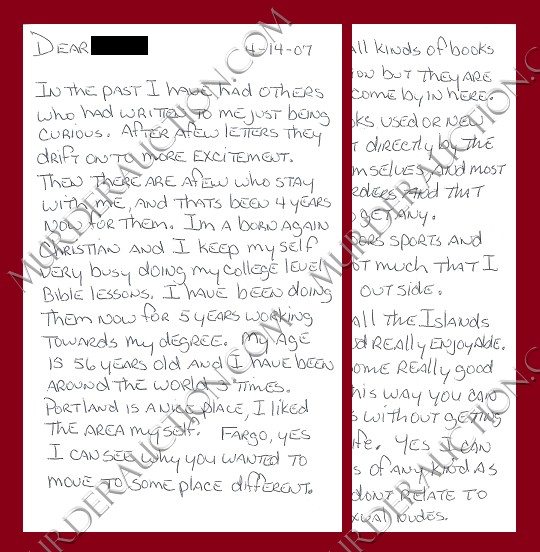 DEAR 4-14-07
IN THE PAST I HAVE HAD OTHERS
WHO HAD WRITTEN TO ME JUST BEING
CURIOUS. AFTER AFEW LETTERS THEY
DRIFT ON TO MORE EXCITEMENT.
THEN THERE ARE AFEW WHO STAY
WITH ME, AND THATS BEEN 4 YEARS
NOW FOR THEM. IM A BORN AGAIN
CHRISTIAN AND I KEEP MY SELF
VERY BUSY DOING MY COLLEGE LEVEL
BIBLE LESSONS. I HAVE BEEN DOING
THEM NOW FOR 5 YEARS WORKING
TOWARDS MY DEGREE. MY AGE
IS 56 YEARS OLD AND I HAVE BEEN
AROUND THE WORLD 3 TIMES.
PORTLAND IS A NICE PLACE, I LIKED
THE AREA MY SELF. FARGO, YES
I CAN SEE WHY YOU WANTED TO
MOVE TO SOME PLACE DIFFERENT.
all KINDS OF BOOKS
ION BUT THEY ARE
COME BY IN HERE.
OKS USED OR NEW
T DIRECTLY BY THE
MSELVES AND MOST
RDERS AND THAT
GET ANY.
OORS SPORTS AND
OT MUCH THAT I
OUT SIDE.
all THE ISLANDS
ND REALLY ENJOYABLE.
OME REALLY GOOD
HIS WAY YOU CAN
S WITHOUT GETING
IFE. YES I CAN
S OF ANY KIND AS
DONT RELATE TO
EXUAL NUDES.
MURDERAUCTION.COM
MURDERAUCTION.COM
MURDERAUCTION.COM